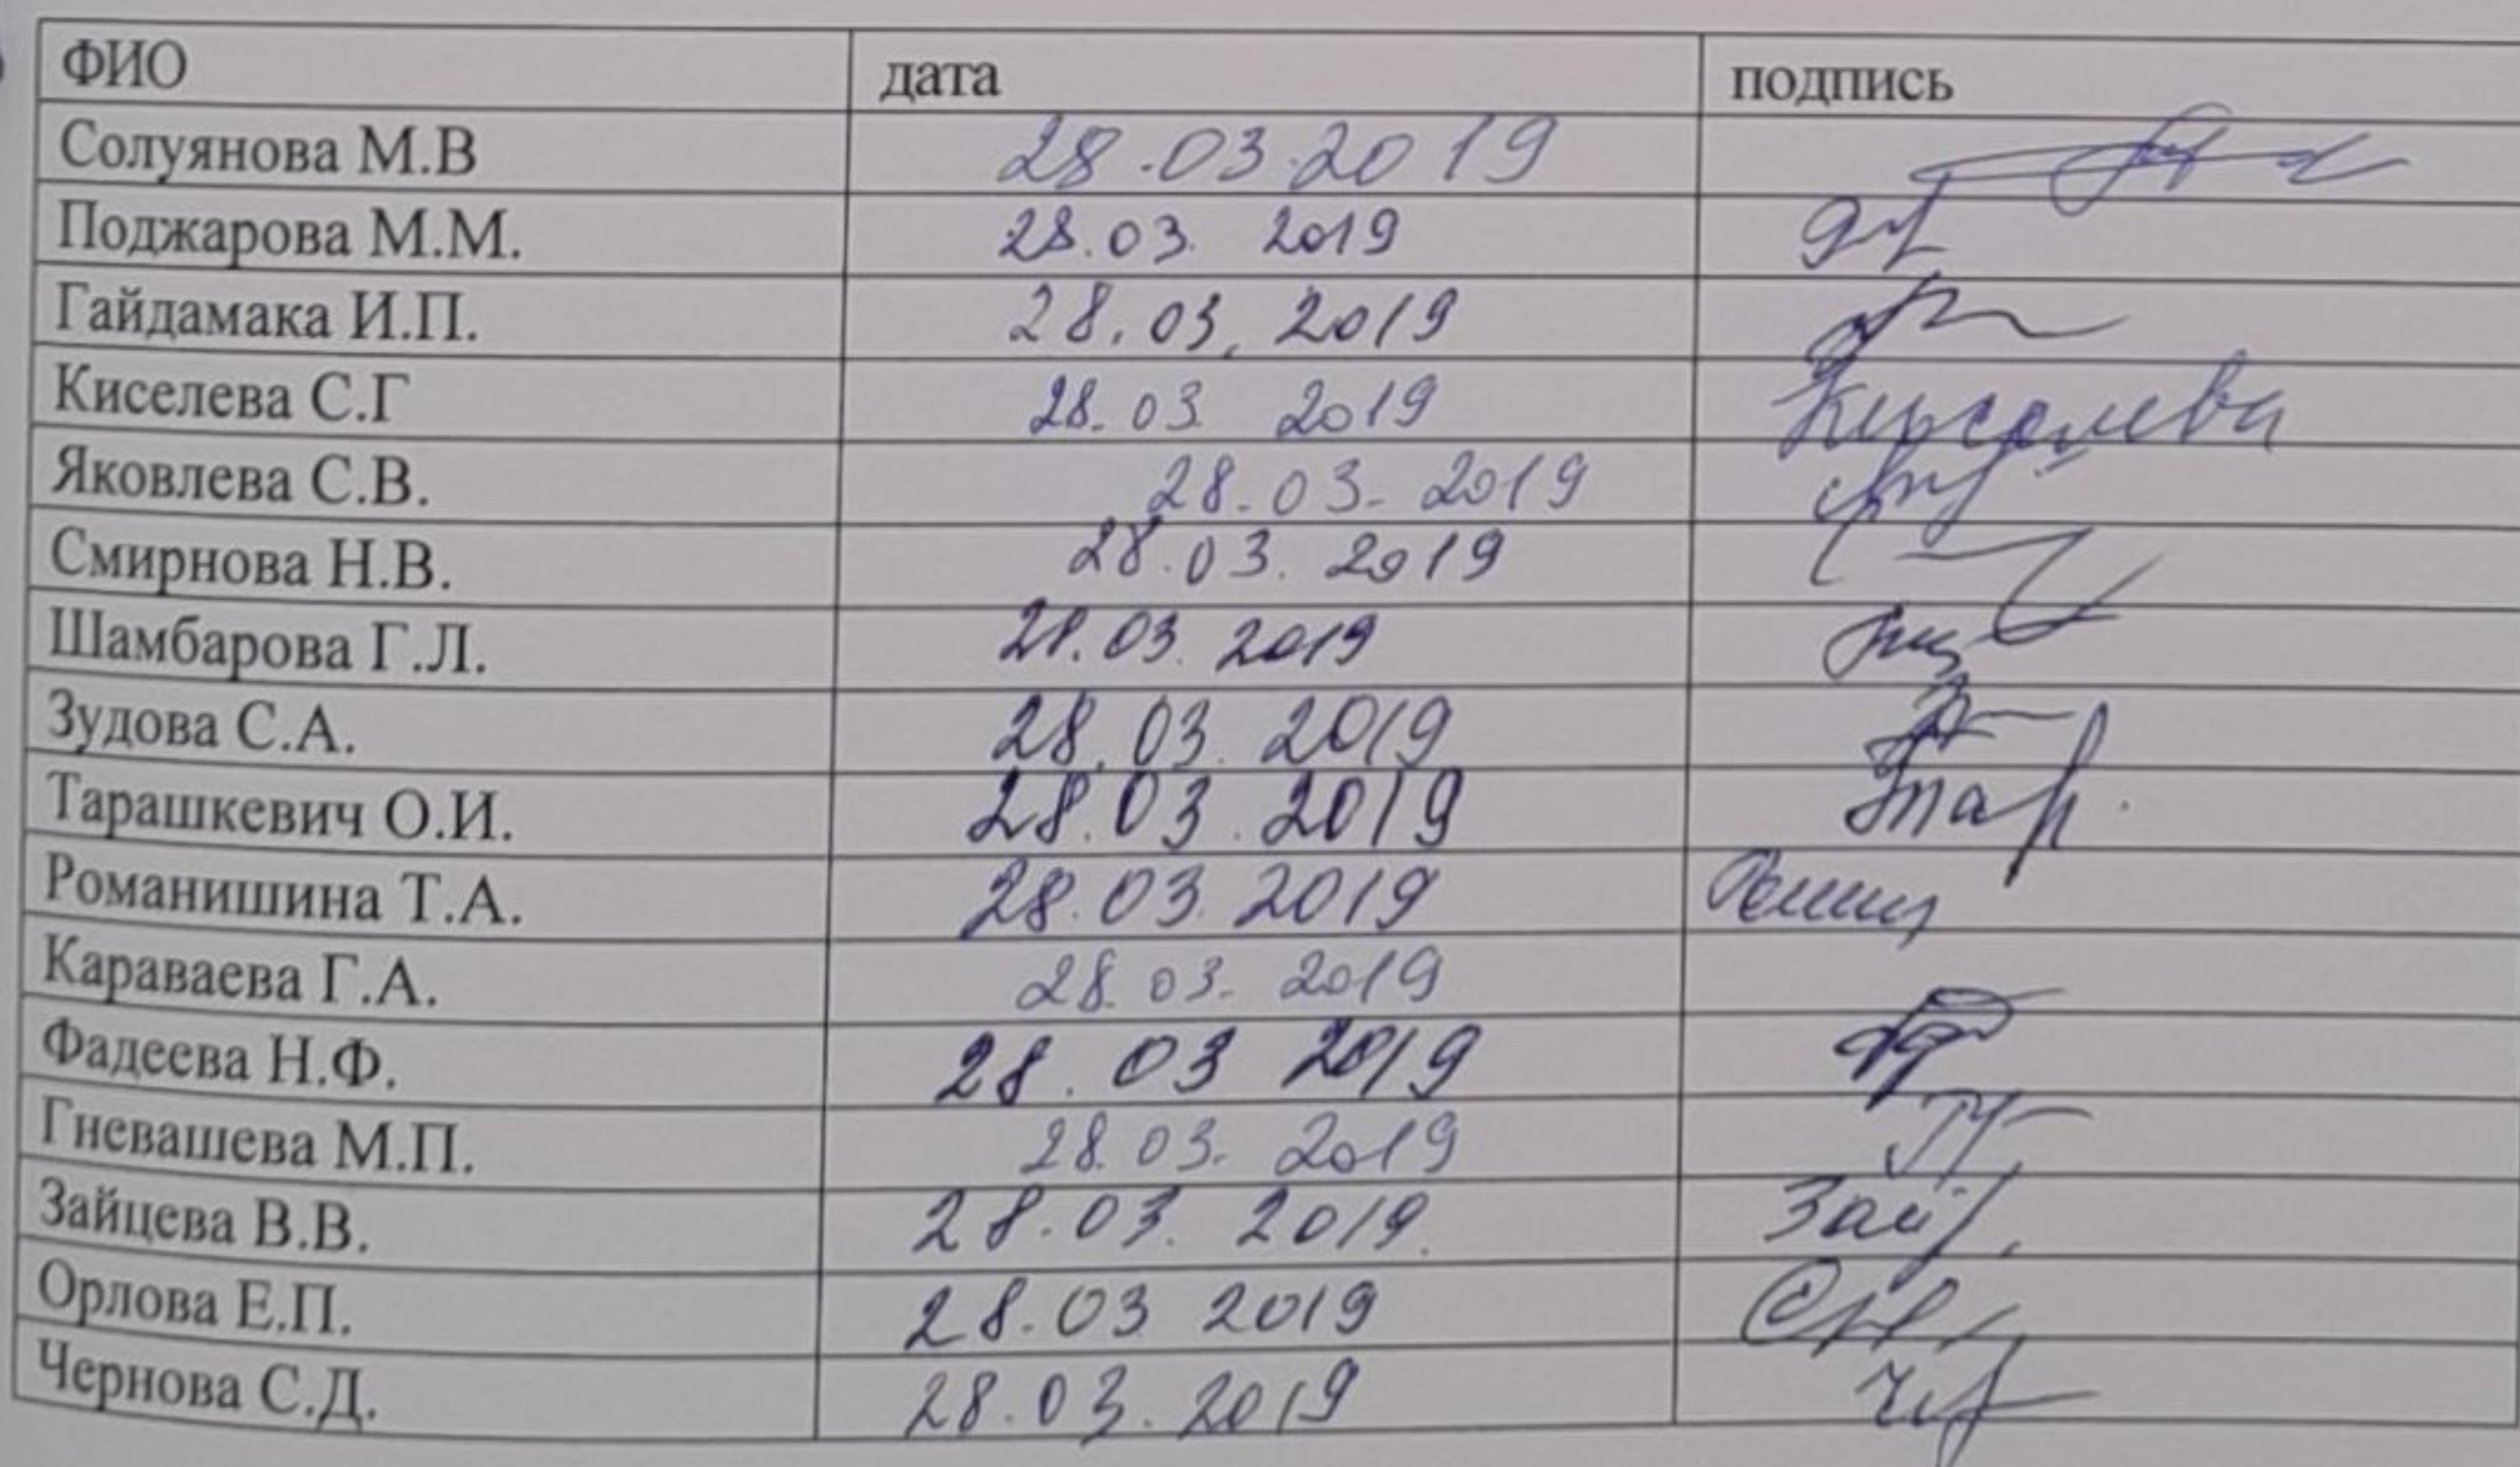 ФИО дата подпись
Солуянова М.В 28.03.2019
Поджарова М.М. 28.03. 2019
Гайдамака И.П. 28.03, 2019
Киселева С.Г 28.03. 2019 Киселева
Яковлева С.В. 28.03. 2019
Смирнова Н.В. 28.03. 2019
Шамбарова Г.Л. 28.03. 2019
Зудова С.А. 28.03. 2019
Тарашкевич О.И. 28.03.2019 Тар
Романишина Т.А. 28.03.2019
Караваева Г.А. 28.03. 2019
Фадеева Н.Ф. 28.03 2019
Гневашева М.П. 28.03. 2019
Зайцева В.В. 28.03. 2019. Зай
Орлова Е.П. 28.03 2019
Чернова С.Д. 28.03.2019